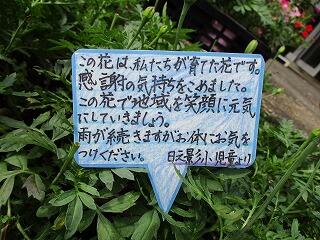 この花は、私たちが育てた花です。
感謝の気持ちをこめました。
この花で地域を笑顔に元気
にしていきましょう。
雨が続きますがお体にお気を
つけください。 日之影小 児童より